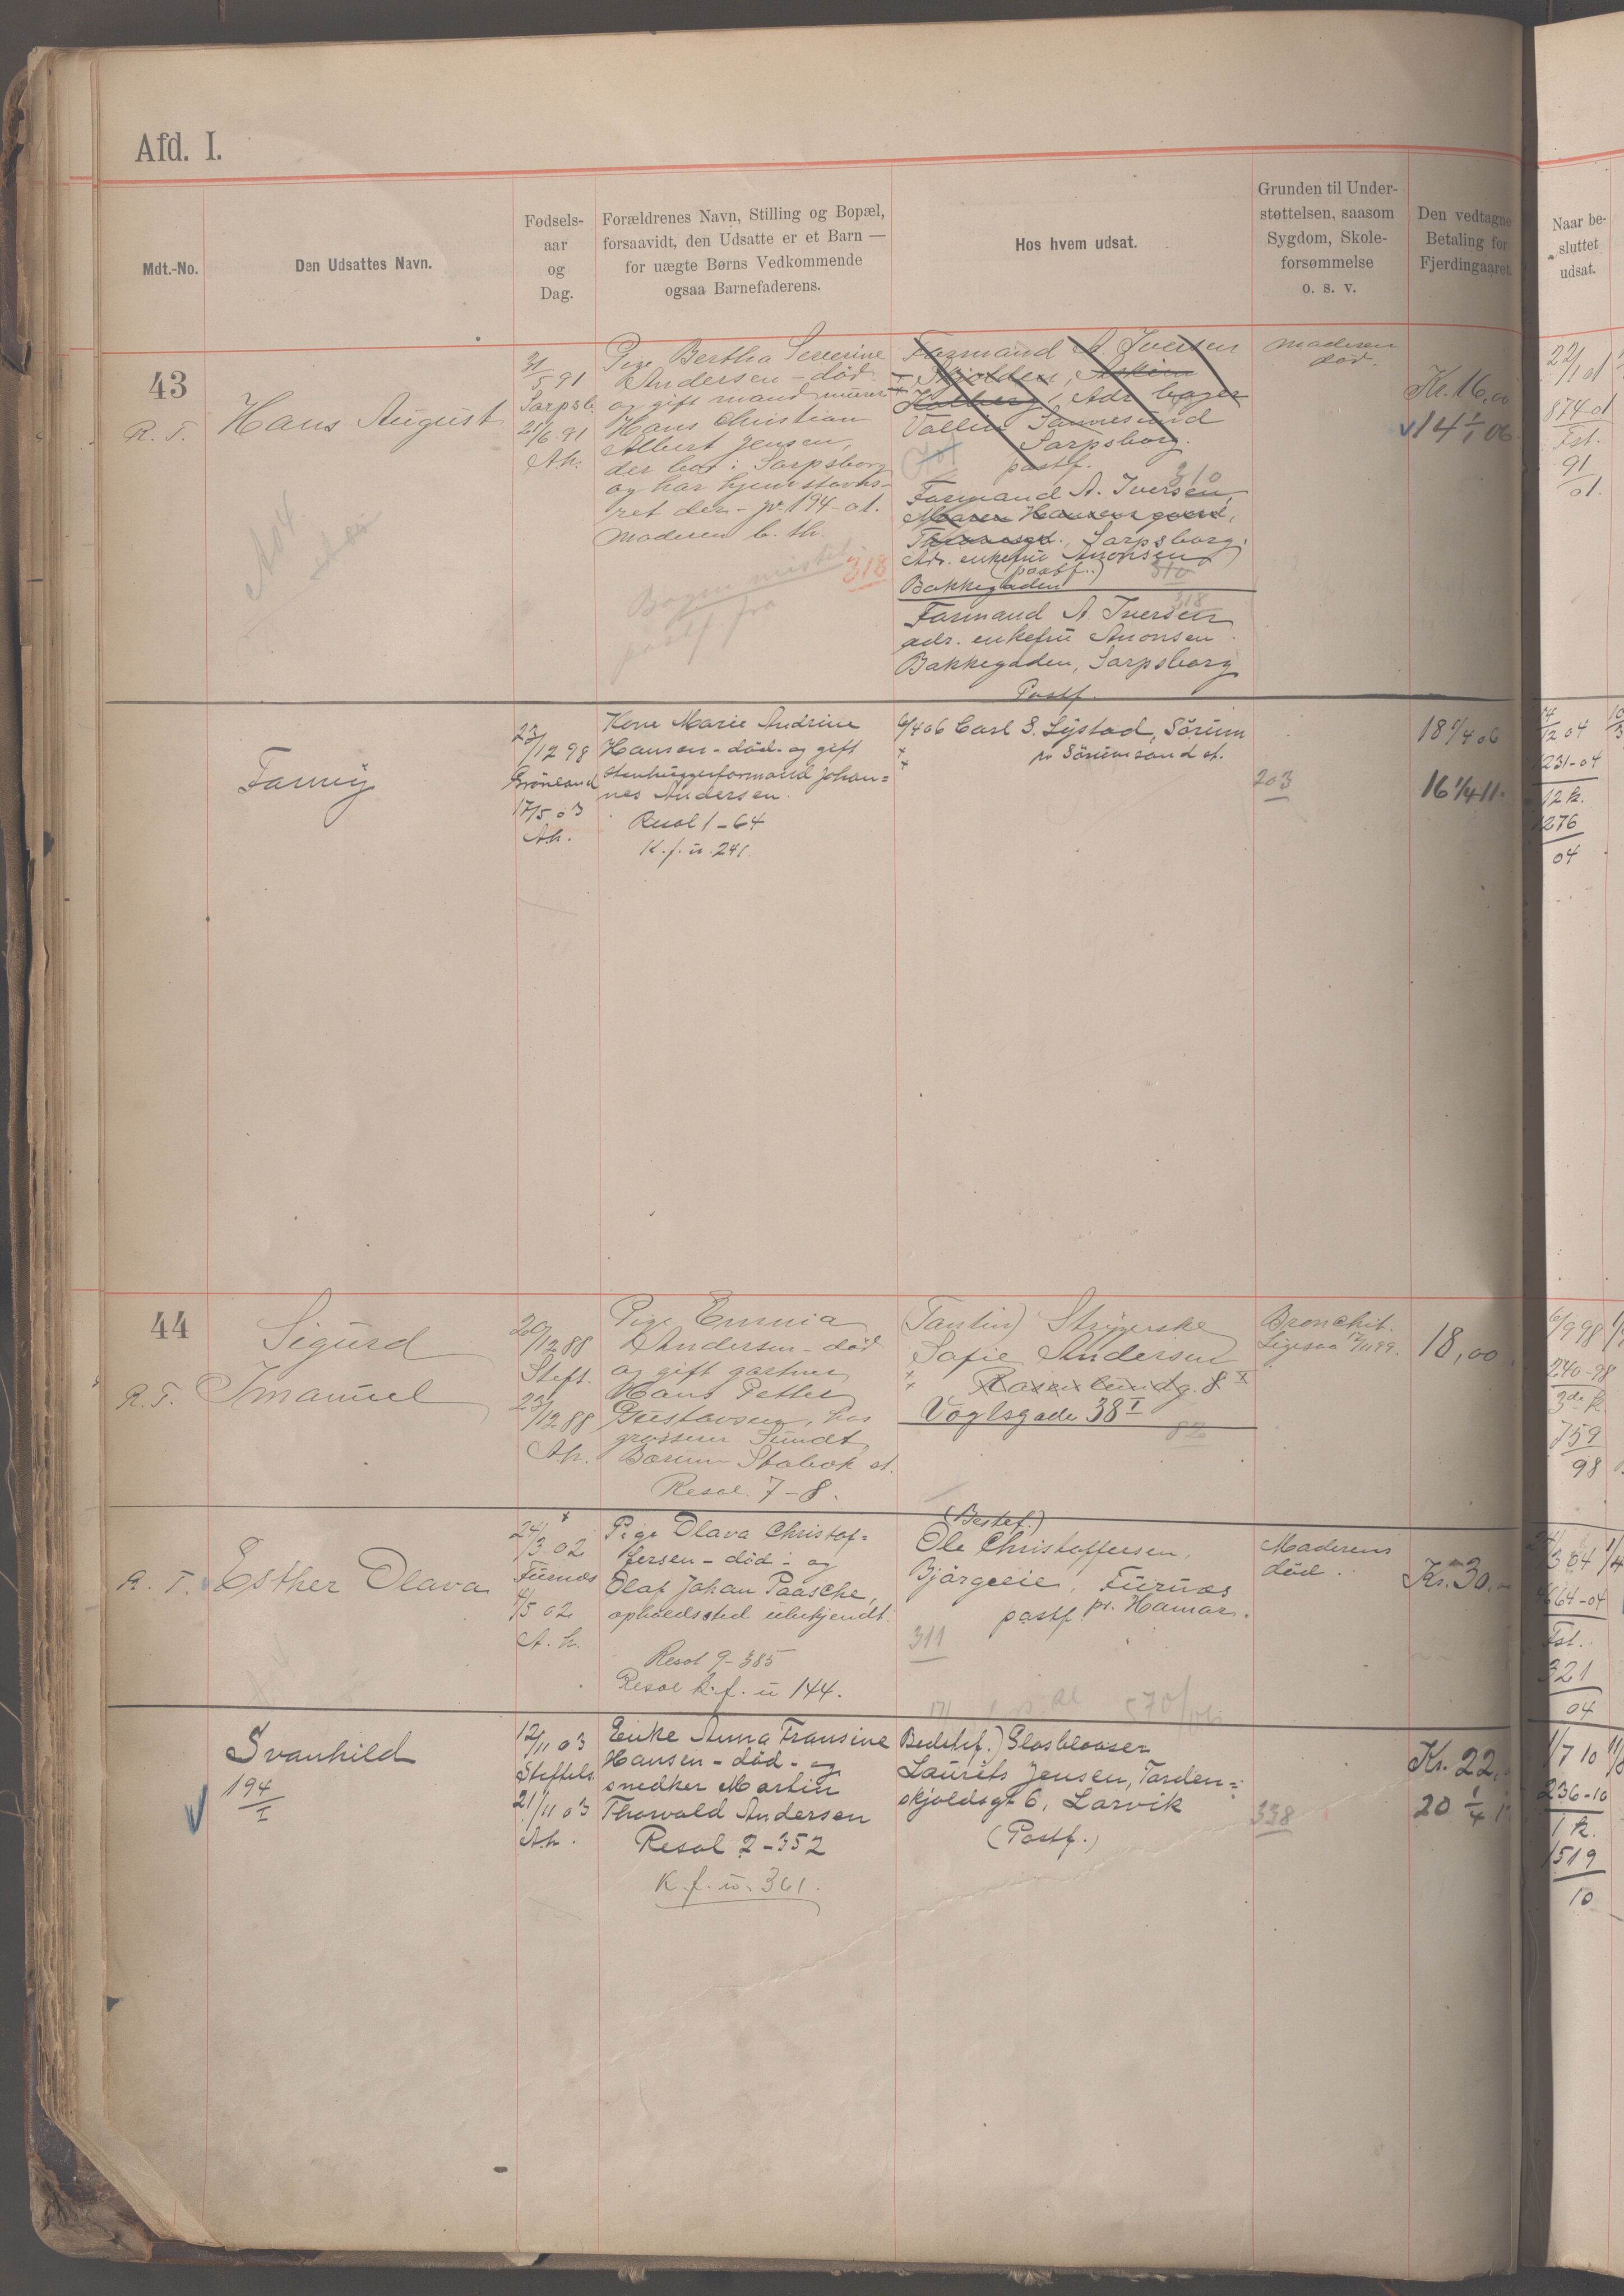 Afd. I.
Mdt.-No.
Den Udsattes Navn.
Fødsels-
aar
og
Dag.
Forældrenes Navn, Stilling og Bopæl,
forsaavidt, den Udsatte er et Barn —
for uægte Børns Vedkommende
ogsaa Barnefaderens.
Hos hvem udsat.
Grunden til Under-
støttelsen, saasom
Sygdom, Skole-
forsømmelse
o. s. v.
Den vedtagne
Betaling for
Fjerdingaaret.
Naar be-
sluttet
udsat.
43
R. T.
Hans August
31/5 91
Sarpsb.
21/6 91
Ah.
Pige Bertha Severine
Andersen - død
og gift mand murer
Hans Christian
Albert Jensen,
der bor i Sarpsborg
og har hjemstavns-
ret der - jr. 194-01.
Moderen b. th.
Bogen mistet
postf. fra
318
Formand A. Iversen
Skjolden, Askim
Holberg, Adr. bager
Vallin Sannesund
Sarpsborg.
postf.
310
Formand A. Iversen,
Maren Hansens gaard,
Sarpsborg.
Adr. enkefru Amonsen
(postf.)
310
Bakkegaden
318
Formand A. Iversen
adr. enkefru Amonsen
Bakkegaden, Sarpsborg
Postf.
Moderen
død.
Kr. 16,00
14 1/1 06
22/1 01
874-01
Fst.
91
01.
Fanny
23/12 98
Grönland
17/5 03
Ah.
Kone Marie Andrine
Hansen - död - og gift
Stenhuggerformand Johan=
nes Andersen.
Resol 1-64
K. f. u. 241.
6/4 06 Carl S. Lystad, Sörum
pr Sörumsand st.
203
18 1/4 06
16 1/4 11.
12 04
231-04
12 k.
1276
04
44
R. T.
Sigurd
Imanuel
20/12 88
Stift.
23/12 88
Ah.
Pige Emmia
Andersen - død
og gift gartner
Hans Petter
Gustavsen, hos
grosserer Sundt,
Bærum Stabæk st.
Resol. 7-8.
(Tanten) Strygerske
Sofie Andersen
Rosenlundg. 8
Voglsgade 38 I
82
Bronchit.
Ligesaa 17/11 99.
18,00
6/9 98
240-98
3de k
759
98
R. T.
Esther Olava
24/3 02
Furnes
4/5 02
A. h.
Pige Olava Christof=
fersen - död - og
Olaf Johan Paasche,
opholdssted ubekjendt.
Resol 9-385
Resol k. f. u 144.
(Bestef.)
Ole Christoffersen,
Bjørgeeie, Furnæs
postf. pr. Hamar.
311
Moderens
död.
Kr. 30,
3 04
664-04
Fst.
321
04
Svanhild
194
I
12/11 03
Stiftels.
21/11 03
Ah.
Enke Anna Fransine
Hansen - död - og
snedker Martin
Thorvald Andersen
Resol 2-352
K. f. u. 361.
Bedstef.) Glasblæser
Laurits Jensen, Torden=
skjoldsgt 6, Larvik
(Postf.)
338
Kr. 22,
20 1/4
1/7 10
236-10
1 k.
1519
10